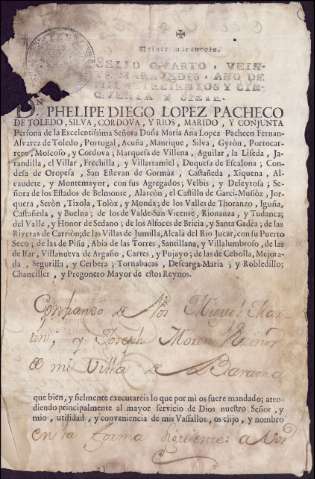 SELLO QVARTO, VEIN-
MARAVEDIS, AÑO DE
D. PHELIPE DIEGO LOPEZ PACHECO
DE TOLEDO, SILVA, CORDOVA, Y RIOS, MARIDO, Y CONJUNTA
Persona de la Excelentissima Señora Doña Maria Ana Lopez Pacheco Fernan-
Alvarez de Toledo, Portugal, Acuña, Manrique, Silva, Gyròn, Portocar-
rero, Moscoso, y Cordova, Marquesa de Villena, Aguilar, la Liseda, Ja-
randilla, el Villar, Frechilla, y Villarramiel, Duquesa de Escalona, Conde-
sa de Oropesa, San Estevan de Gormàz, Castañeda, Xiquena, Al-
caudete, y Montemayor, con sus Agregados, Velbis, y Deleytosa, Se-
ñora de los Estados de Belmonte, Alarcòn, el Castillo de Garci-Muñoz, Jor-
quera, Seròn, Tixola, Tolòx, y Monda; de los Valles de Thoranzo, Iguña,
Castañeda, y Buelna; de los de Valde-San Vicente, Rionansa, y Tudanca;
del Valle, y Honor de Sedano; de los Alfoces de Bricia, y Santa Gadèa; de
las Riveras de Carriòn; de las Villas de Jumilla, Alcalà del Rio Jucar, con su Puerto
Seco; de las de Piña, Abia de las Torres, Santillana, y Villalumbroso, de las
de Itar, Villanueva de Argaño, Cartes, y Pujayo; de las de Cebolla, Mejo-
rada, Segurilla, y Cervera; Tornabacas, Descarga-Maria, y Robledillo;
Chanciller, y Pregonero Mayor de estos Reynos.
de mi Villa de
que bien, y fielmente executareis lo que por mi os fuere mandado; aten-
diendo principalmente al mayor servicio de Dios nuestro Señor, y
mio, utilidad, y conveniencia de mis Vassallos, os elijo, y nombro
en la forma siguiente: a Vos